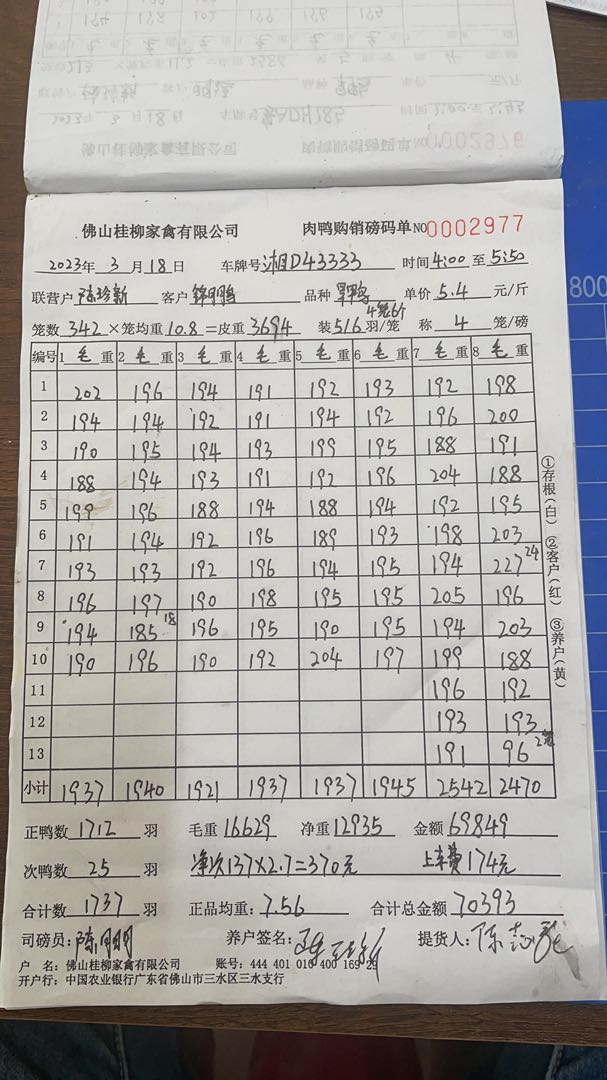 佛山桂柳家禽有限公司 肉鸭购销磅码单 NO 0002977
2023年 3 月 18 日 车牌号 湘D43333 时间 4:00 至 5:50
联营户 陈珍新 客户 品种 单价 5.4 元/斤
4笼6斤
笼数 342 ×笼均重 10.8 =皮重 3694 装 516 羽/笼 称 4 笼/磅
编号 1 毛 重 2 毛 重 3 毛 重 4 毛 重 5 毛 重 6 毛 重 7 毛 重 8 毛 重
1 202 196 194 191 192 193 192 198
2 194 194 192 191 194 192 196 200
3 190 195 194 193 199 195 188 191
4 188 194 193 191 192 196 204 188
5 199 196 188 194 188 194 192 195
6 191 194 192 196 189 193 198 203
7 193 193 192 196 194 195 194 227 24
8 196 197 190 198 195 195 205 196
9 194 185 18 196 195 190 195 194 203
10 190 196 190 192 204 197 199 188
11 196 192
12 193 193
13 191 96 2笼
小计 1937 1940 1921 1937 1937 1945 2542 2470
①存根(白) ②客户(红) ③养户(黄)
正鸭数 1712 羽 毛重 16629 净重 12935 金额 69849
次鸭数 25 羽 净次137×2.7=370元 上车费174元
合计数 1737 羽 正品均重: 7.56 合计总金额 70393
司磅员: 陈明明 养户签名: 提货人: 陈志
户 名: 佛山桂柳家禽有限公司 账号: 444 401 010 400 169 29
开户行: 中国农业银行广东省佛山市三水区三水支行
800